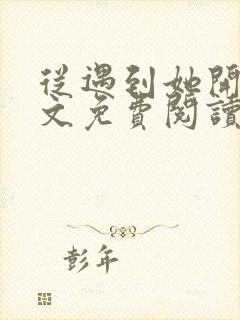 從遇到她開
文免費閱讀
彭年